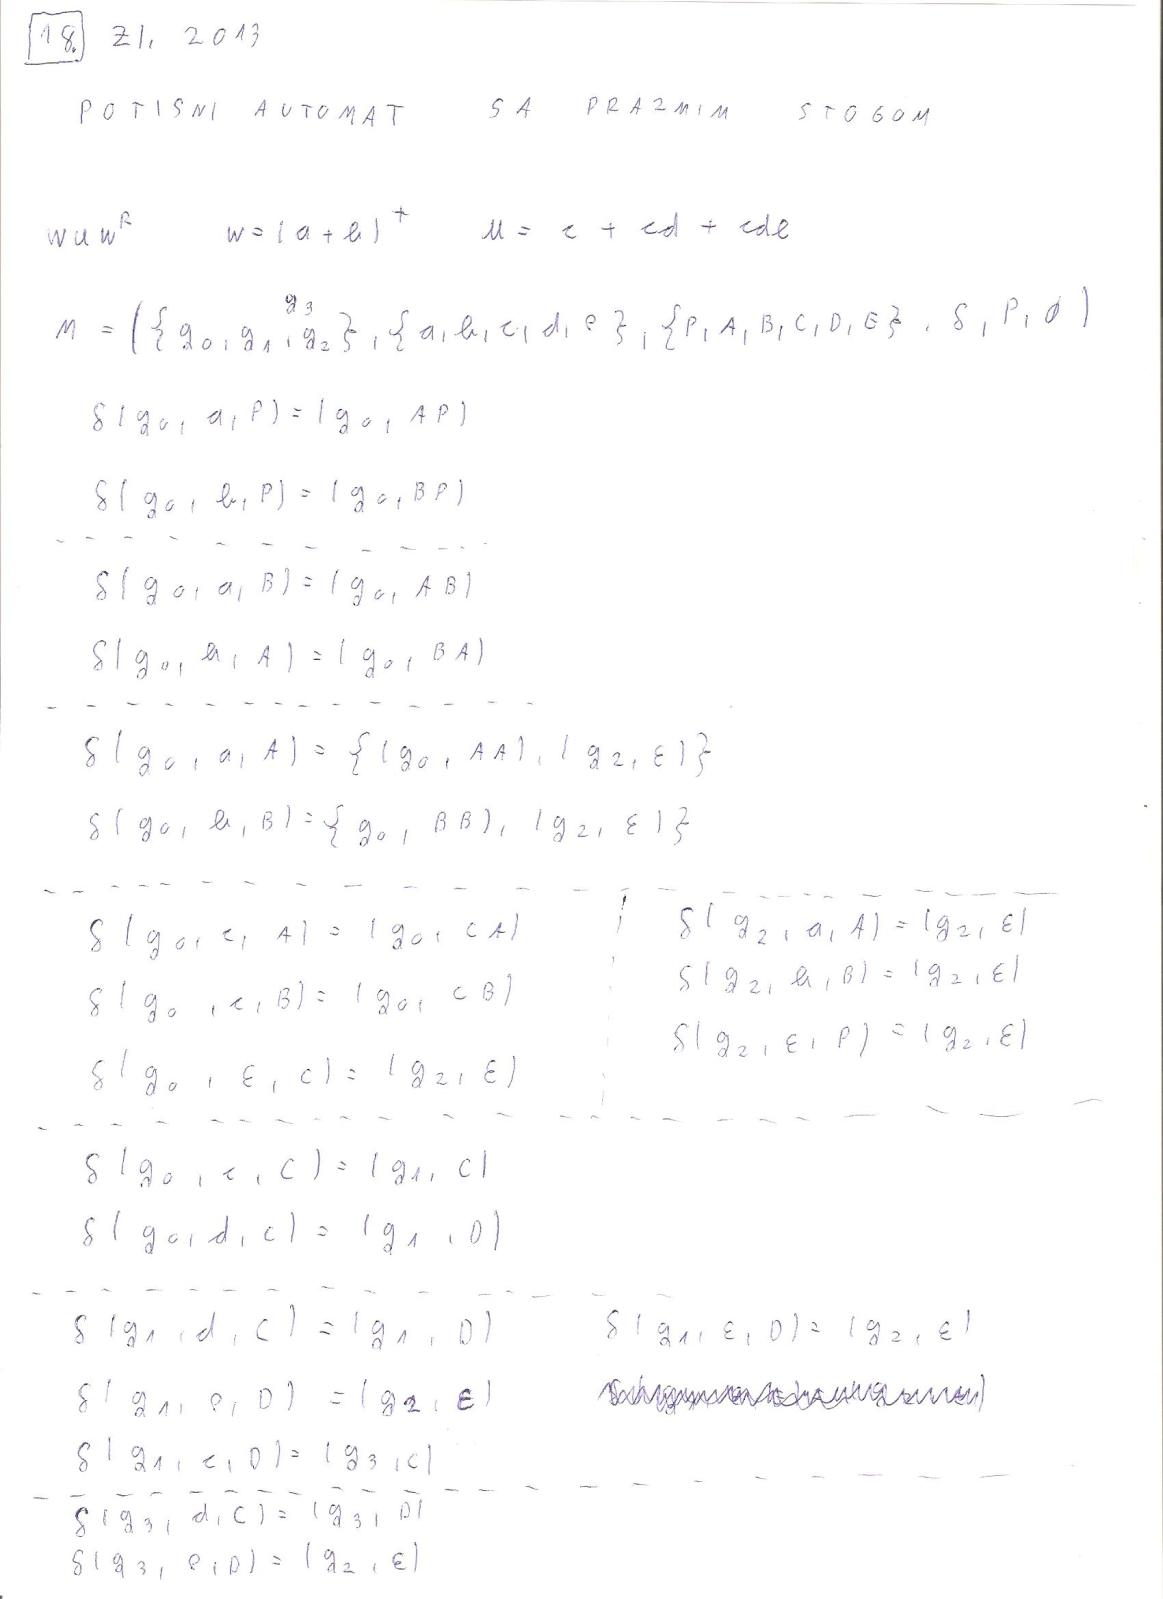 18. ZI, 2013
POTISNI AUTOMAT SA PRAZNIM STOGOM
wuw^R w=(a+b)^+ u= c + cd + cde
q3
M = ({q0, q1, q2}, {a, b, c, d, e}, {P, A, B, C, D, E}, δ, P, ∅)
δ(q0, a, P) = (q0, AP)
δ(q0, b, P) = (q0, BP)
δ(q0, a, B) = (q0, AB)
δ(q0, b, A) = (q0, BA)
δ(q0, a, A) = {(q0, AA), (q2, ε)}
δ(q0, b, B) = {q0, BB), (q2, ε)}
δ(q0, c, A) = (q0, CA)
δ(q0, c, B) = (q0, CB)
δ(q0, ε, C) = (q2, ε)
δ(q2, a, A) = (q2, ε)
δ(q2, b, B) = (q2, ε)
δ(q2, ε, P) = (q2, ε)
δ(q0, c, C) = (q1, C)
δ(q0, d, C) = (q1, D)
δ(q1, d, C) = (q1, D) δ(q1, ε, D) = (q2, ε)
δ(q1, e, D) = (q2, ε)
δ(q1, c, D) = (q3, C)
δ(q3, d, C) = (q3, D)
δ(q3, e, D) = (q2, ε)